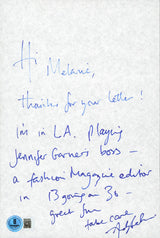 Hi Melanie,
thanks for your letter!
im in L.A. playing
Jennifer Garner's boss –
a fashion Magazine editor
in 13 going on 30 –
great fun
take care